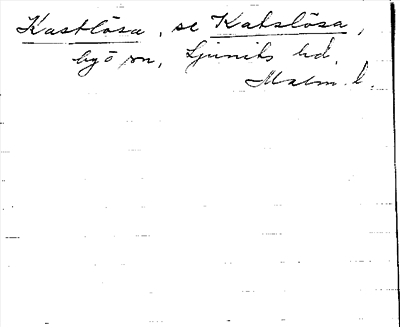 Kastlösa, se Katslösa,
by o sn, Ljunits hd,
Malm. l.